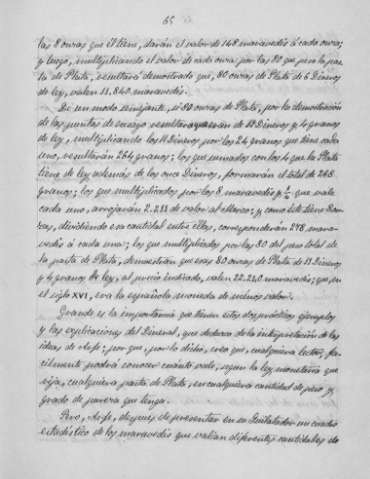 65
las 8 onzas que él tiene, darán el valor de 148 maravedís á cada onza;
y luego, multiplicando el valor de cada onza por las 80 que pesa la par-
ta de Plata, resultará demostrado que, 80 onzas de Plata de 6 Dineros
de ley, valen 11.840 maravedís.
De un modo semejante, si 80 onzas de Plata, por la demostración
de las puntas de ensayo resultara que eran de 11 Dineros y 4 granos
de ley, multiplicando los 11 Dineros por los 24 granos que tiene cada
uno, resultarán 264 granos; los que sumados con los 4 que la Plata
tiene de ley además de los once Dineros, formarán el total de 268
granos; los que multiplicados por los 8 maravedís y que vale
cada uno, arrojarán 2.2 de valor al Marco; y como éste tiene 8 on-
zas, dividiendo esa cantidad entre ellas, corresponderán 278 marave-
dís á cada una; los que multiplicados por las 80 del peso total de
la parta de Plata, demuestran que esas 80 onzas de Plata de 11 Dineros
y 4 granos de ley, al precio indicado, valen 22.240 maravedís; que en
el siglo XVI, era la española moneda de menos valor.
Grande es la importancia que tienen estos dos prácticos ejemplos
y las explicaciones del General, que deduzco de la interpretación de las
ideas de Arfe; por que, por lo dicho, creo que, cualquiera lector, fá-
cilmente podrá conocer cuánto vale, según la ley monetaria que
rija, cualquiera parta de Plata, en cualquiera cantidad de peso y
grado de pureza que tenga.
Pero, Arfe, después de presentar en su Quilatador un cuadro
estadístico de los maravedís que valían diferentes cantidades de